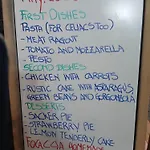 FIRST DISHES
PASTA (FOR CELIACS TOO)
- MEAT RAGOUT
- TOMATO AND MOZZARELLA
- PESTO
SECOND DISHES
- CHICKEN WITH CARROTS
- RUSTIC CAKE WITH ASPARAGUS,
GREEN BEANS AND GORGONZOLA
DESSERTS
- SACKER PIE
- STRAWBERRY PIE
- LEMON TENDERLY CAKE
FOCACCIA HOMEMADE